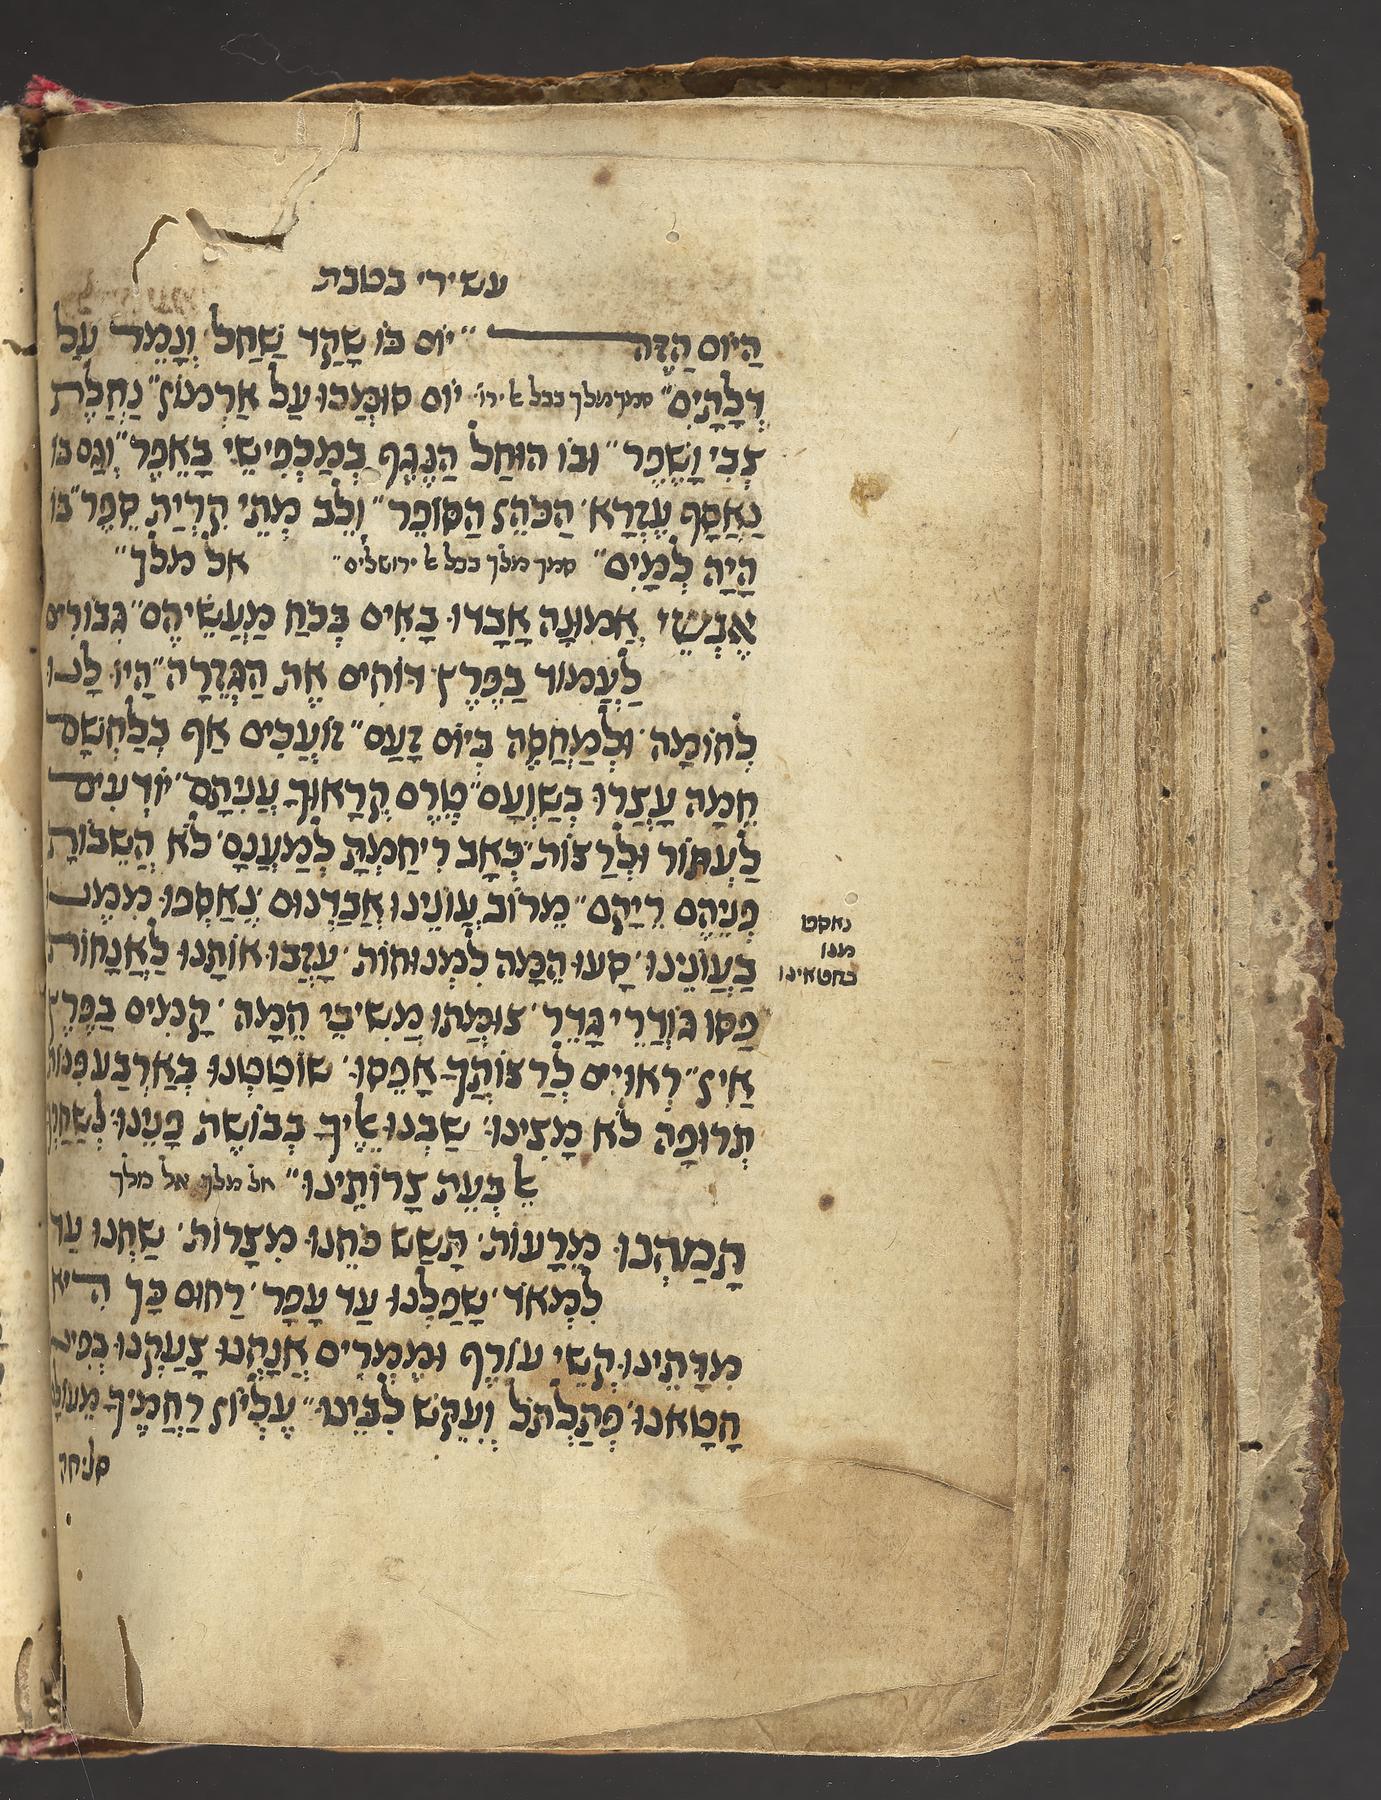 עשירי בטבת
הַיּוֹם הַזֶּה״ יוֹם בּוֹ שָׁקַד שַׁחַל וְנָמֵר עַל
דְּלָתָיִם״ סמך מלך בבל א׳ יר׳ יוֹם סוּמְּכוּ עַל אַרְמוֹן״ נַחֲלַת
צְבִי וָשֶׁפֶר״ וּבוֹ הוּחַל הַנֶּגֶף בְּמַכְפִּישֵׁי בָאֵפֶר״ וְגַם בּוֹ
נֶאֱסָף עֶזְרָא׳ הַכֹּהֵן הַסּוֹפֵר״ וְלֵב מְתֵי קִרְיַת סֵפֶר״ בּוֹ
הָיָה לְמָיִם״ סמך מלך בבל א׳ ירושלים״ אל מלך״
אַנְשֵׁי אֲמוּנָה אָבָדוּ בָּאִים בְּכֹחַ מַעֲשֵׂיהֶם״ גִּבּוֹרִים
לַעֲמוֹד בַּפֶּרֶץ דּוֹחִים אֶת הַגְּזֵרָה״ הָיוּ לָנוּ
לְחוֹמָה׳ וּלְמַחְסֶה בְּיוֹם זָעַם״ זוֹעֲכִים אַף בְּלַחְשָׁם
חֵמָה עָצְרוּ בְּשַׁוְעָם״ טֶרֶם קְרָאוּךָ עֲנִיתָם׳ יוֹדְעִים
לַעְתּוֹר וּלְרַצּוֹת״ כְּאָב רִיחַמְתָּ לְמַעֲנָם׳ לֹא הֲשֵׁבוֹתָ
פְּנֵיהֶם רֵיקָם״ מֵרוֹב עֲוֹנֵינוּ אֲבַדְנוּם׳ נֶאֶסְפוּ מִמֶּנּוּ
בַּעֲוֹנֵינוּ׳ סָעוּ הֵמָּה לִמְנוּחוֹת׳ עָזְבוּ אוֹתָנוּ לַאֲנָחוֹת
פַּסּוּ גּוֹדְרֵי גָדֵר׳ צוּמְּתוּ מְשִׁיבֵי חֵמָה׳ קָמִים בַּפֶּרֶץ
אַיִן״ רְאוּיִים לְרַצּוֹתְךָ אָפֵסוּ׳ שׁוֹטַטְנוּ בְּאַרְבַּע פִּנּוֹת
תְּרוּפָה לֹא מָצִינוּ׳ שַׁבְנוּ אֵלֶיךָ בְּבוֹשֶׁת פָּנֵינוּ׳ לְשַׁחֲרָךְ
אֵל בְּעֵת צָרוֹתֵינוּ״ אל מלך
תָּמַהְנוּ מֵרָעוֹת׳ תָּשַׁשׁ כֹּחֵנוּ מִצָּרוֹת׳ שַׁחְנוּ עַד
לִמְאוֹד׳ שָׁפַלְנוּ עַד עָפָר׳ רַחוּם כָּךְ הִיא
מִדָּתֵינוּ קְשֵׁי עוֹרֶף וּמַמְרִים אֲנָחְנוּ צָעַקְנוּ בְּפִינוּ
חָטָאנוּ׳ פְּתַלְתֹּל וְעִקֵּשׁ לִבֵּינוּ״ עֶלְיוֹן רַחֲמֶיךָ מֵעוֹלָם
נאספו
ממנו
בחטאינו